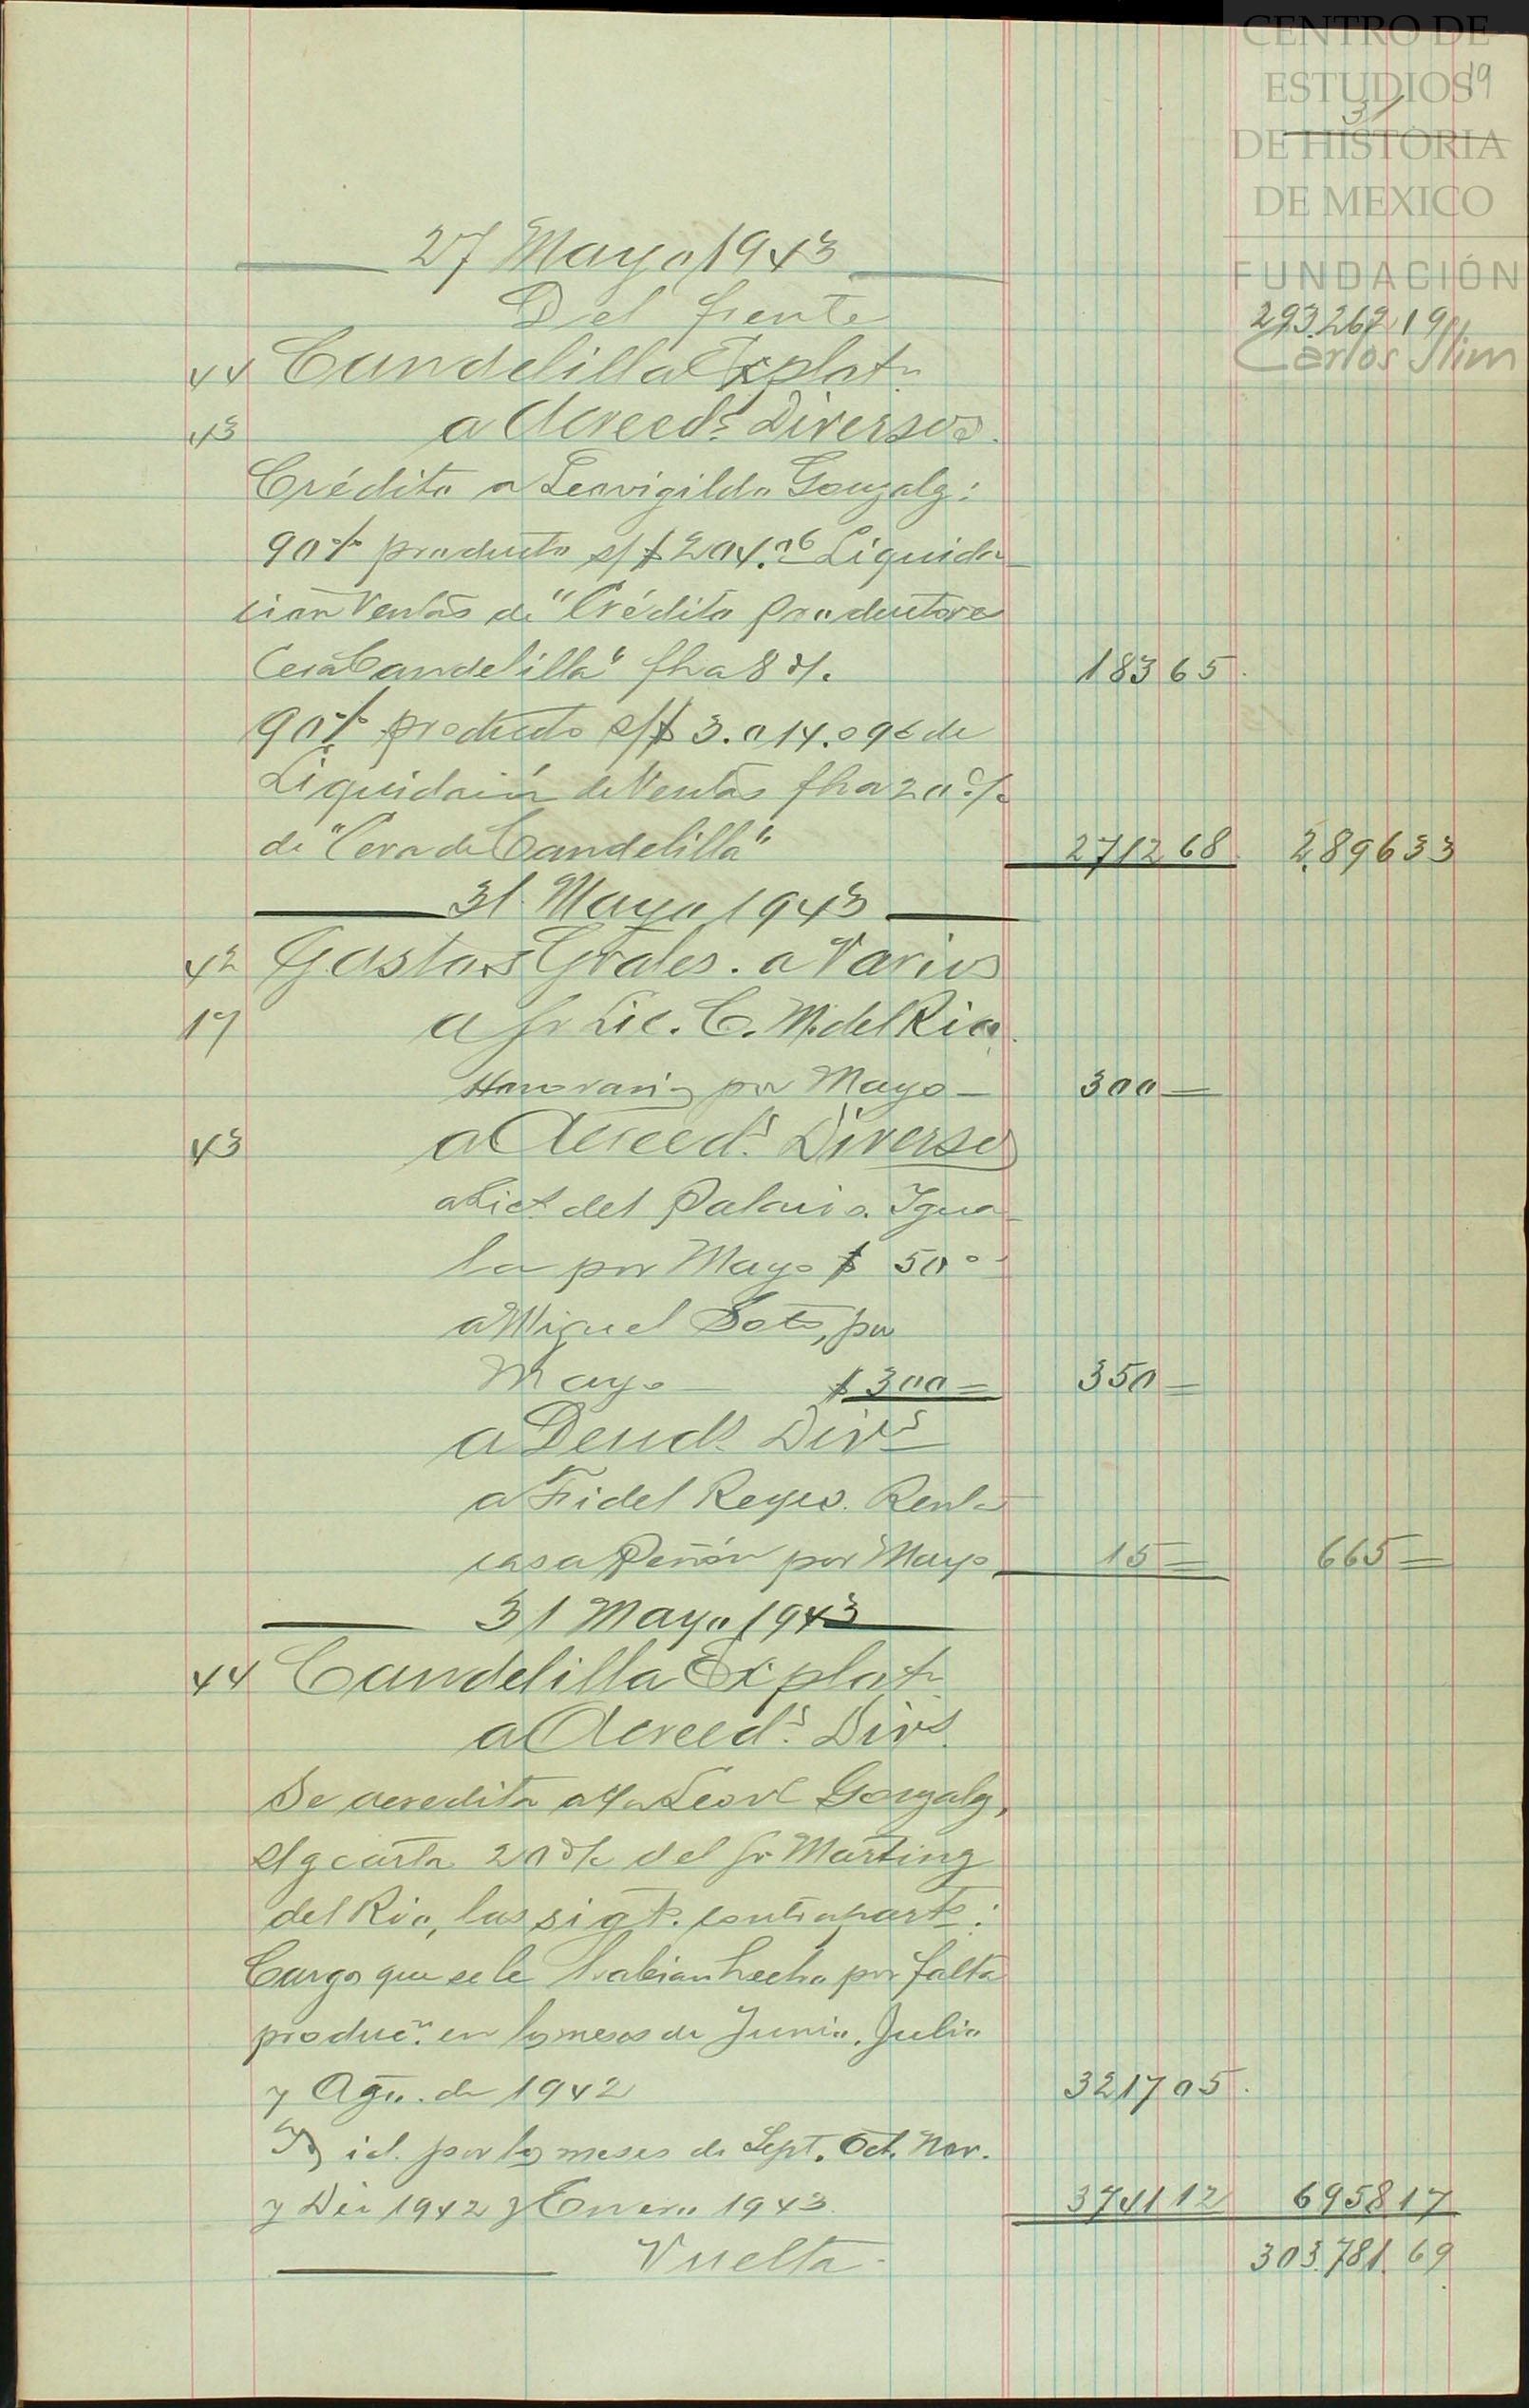 CENTRO DE
ESTUDIOS
19
31
DE HISTORIA
DE MEXICO
FUNDACIÓN
Carlos Slim
27 Mayo 1943
Del frente 293.262 19
44 Candelilla Explotn
43 a Acreeds Diversos.
Crédito a Leovigildo Gonzalz:
90% producto s/$204.06 Liquida
ción Ventas de "Crédito Productores
Cera Candelilla" fha 8 d/. 183 65
90% producto s/$ 3.014.096 de
Liquidación de Ventas fha 20 d/.
de "Cera de Candelilla" 2712 68 2.896 33
31 Mayo 1943
42 Gastos Grales. a Varios
17 a Sr Lic. C. M. del Rio.
Honorarios por Mayo 300 =
43 a Acreeds Diversos
a Lict del Palacio. Igua
la por Mayo $ 50
a Miguel Soto, por
Mayo $ 300 = 350 =
a Deuds Divs
a Fidel Reyes. Renta
casa Peñón por Mayo 15 = 665 =
31 Mayo 1943
44 Candelilla Explotn
a Acreeds Divs.
Se acredita a Leovl Gonzalz,
s/g carta 20 d/. del Sr Martinz
del Rio, las sigts. contraparts:
Cargos que se le habian hecho por falta
producn. en los meses de Junio, Julio
y Ago. de 1942 3217 05
id. por los meses de Sept. Oct. Nov.
y Dic 1942 y Enero 1943. 3741 12 6958 17
Vuelta 303.781.69